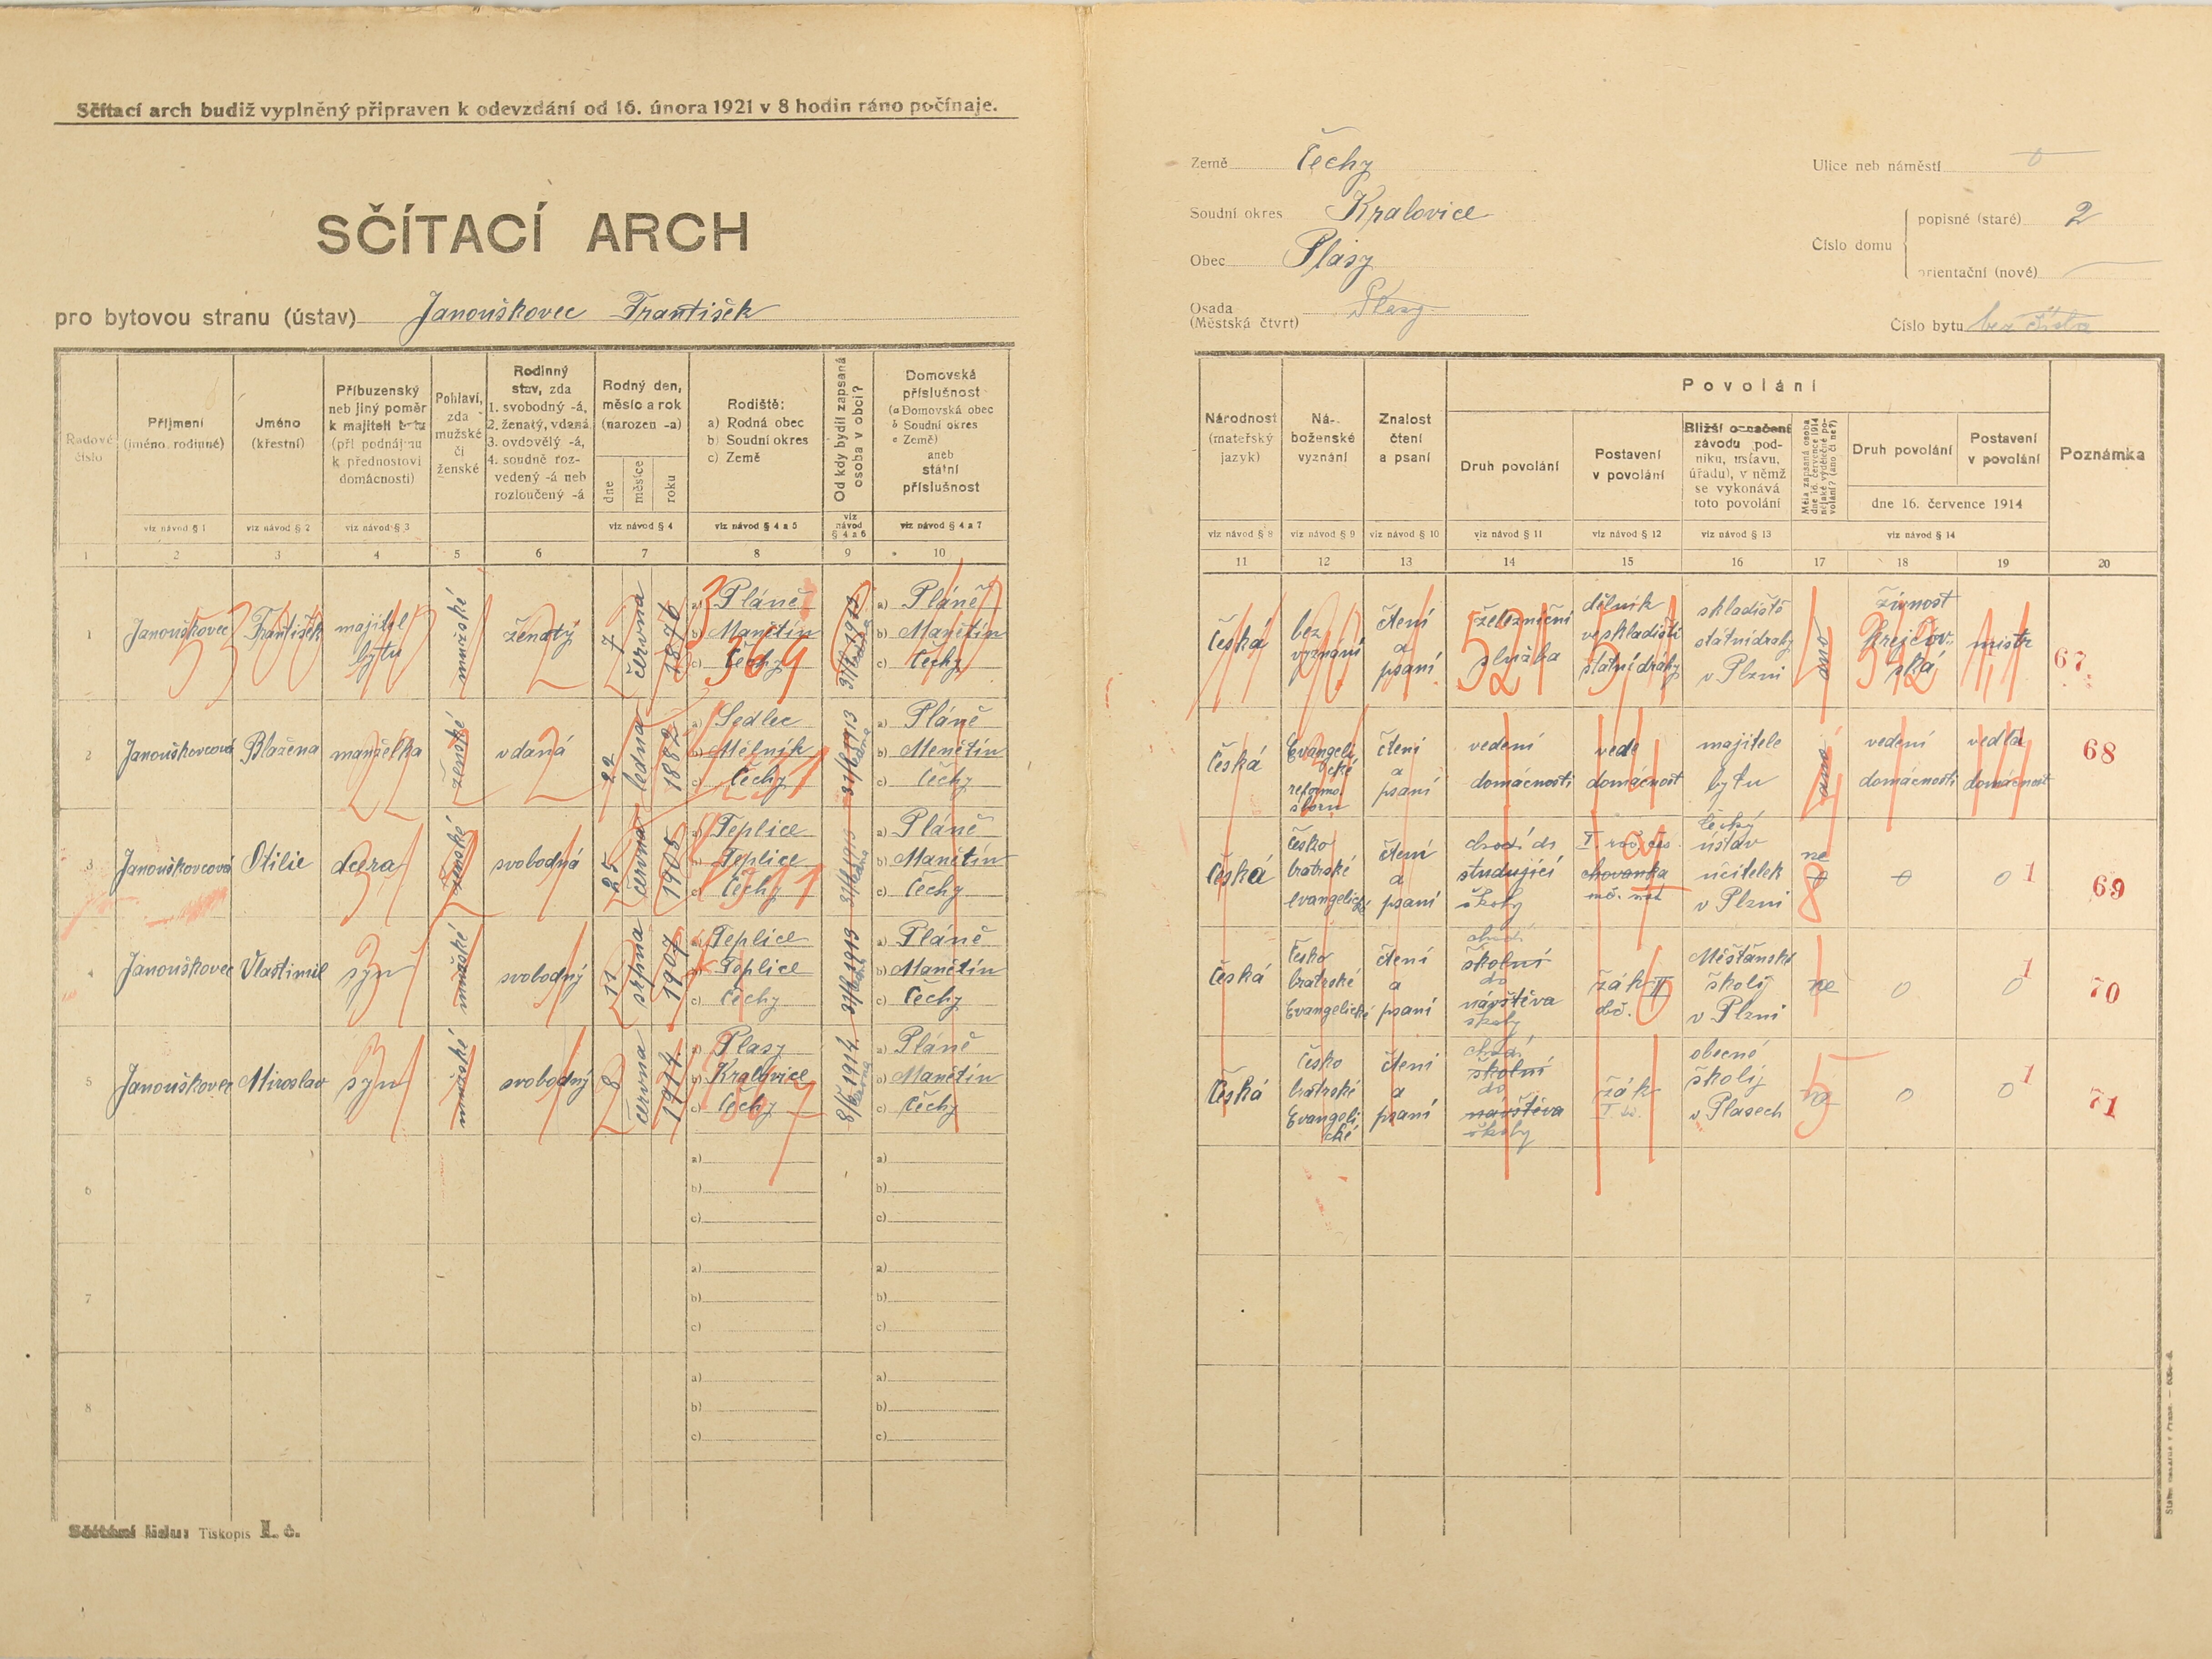 Sčítací arch budiž vyplněný připraven k odevzdání od 16. února 1921 v 8 hodin ráno počínaje.
SČÍTACÍ ARCH
pro bytovou stranu (ústav) Janouškovec František
Země Čechy
Soudní okres Kralovice
Obec Plasy
Osada (Městská čtvrť) Plasy
Ulice neb náměstí
Číslo domu
popisné (staré) 2
orientační (nové)
Číslo bytu bez čísla
Řadové číslo
Příjmení (jméno rodinné)
Jméno (křestní)
Příbuzenský neb jiný poměr k majiteli bytu (při podnájmu k přednostovi domácnosti)
Pohlaví, zda mužské či ženské
Rodinný stav, zda 1. svobodný -á, 2. ženatý, vdaná, 3. ovdovělý -á, 4. soudně rozvedený -á neb rozloučený -á
Rodný den, měsíc a rok (narozen -a)
dne měsíce roku
Rodiště: a) Rodná obec b) Soudní okres c) Země
Od kdy bydlí zapsaná osoba v obci?
Domovská příslušnost (a Domovská obec b Soudní okres c Země) aneb státní příslušnost
viz návod § 1 viz návod § 2 viz návod § 3 viz návod § 4 viz návod § 4 a 5 viz návod § 4 a 6 viz návod § 4 a 7
1 2 3 4 5 6 7 8 9 10
Národnost (mateřský jazyk)
Náboženské vyznání
Znalost čtení a psaní
Povolání
Druh povolání
Postavení v povolání
Bližší označení závodu podniku, ústavu, úřadu), v němž se vykonává toto povolání
Měla zapsaná osoba dne 16. července 1914 nějaké výdělečné povolání? (ano či ne?)
Druh povolání
Postavení v povolání
dne 16. července 1914
Poznámka
viz návod § 8 viz návod § 9 viz návod § 10 viz návod § 11 viz návod § 12 viz návod § 13 viz návod § 14
11 12 13 14 15 16 17 18 19 20
1 Janouškovec František majitel bytu mužské ženatý 7 června 1876
a) Pláně b) Manětín c) Čechy
a) Pláně b) Manětín c) Čechy
Česká bez vyznání čtení a psaní železniční služba dělník ve skladišti státní dráhy skladiště státní dráhy v Plzni ano živnost krejčovská mistr 67
2 Janouškovcová Blažena manželka ženské vdaná 22 ledna 1882
a) Sedlec b) Mělník c) Čechy
a) Pláně b) Menětín c) Čechy
Česká Evangelické reformo. sboru čtení a psaní vedení domácnosti vede domácnost majitele bytu ano vedení domácnosti vedla domácnost 68
3 Janouškovcová Otilie dcera ženské svobodná 25 června 1905
a) Teplice b) Teplice c) Čechy
a) Pláně b) Manětín c) Čechy
Česká Česko bratrské evangelické čtení a psaní chodí do studující školy chovanka český ústav učitelek v Plzni ne 0 0 1 69
4 Janouškovec Vlastimil syn mužské svobodný 11 srpna 1907
a) Teplice b) Teplice c) Čechy
a) Pláně b) Manětín c) Čechy
Česká Česko bratrské Evangelické čtení a psaní chodí školní do návštěva školy žák II Měšťanské školy v Plzni ne 0 0 1 70
5 Janouškovec Miroslav syn mužské svobodný 8 června 1914
a) Plasy b) Kralovice c) Čechy
8/6 1914
a) Pláně b) Manětín c) Čechy
Česká Česko bratrské Evangelické čtení a psaní chodí školní do návštěva školy žák obecné školy v Plasech ne 0 0 1 71
6 a) b) c) a) b) c)
7 a) b) c) a) b) c)
8 a) b) c) a) b) c)
Sčítání lidu: Tiskopis I. č.